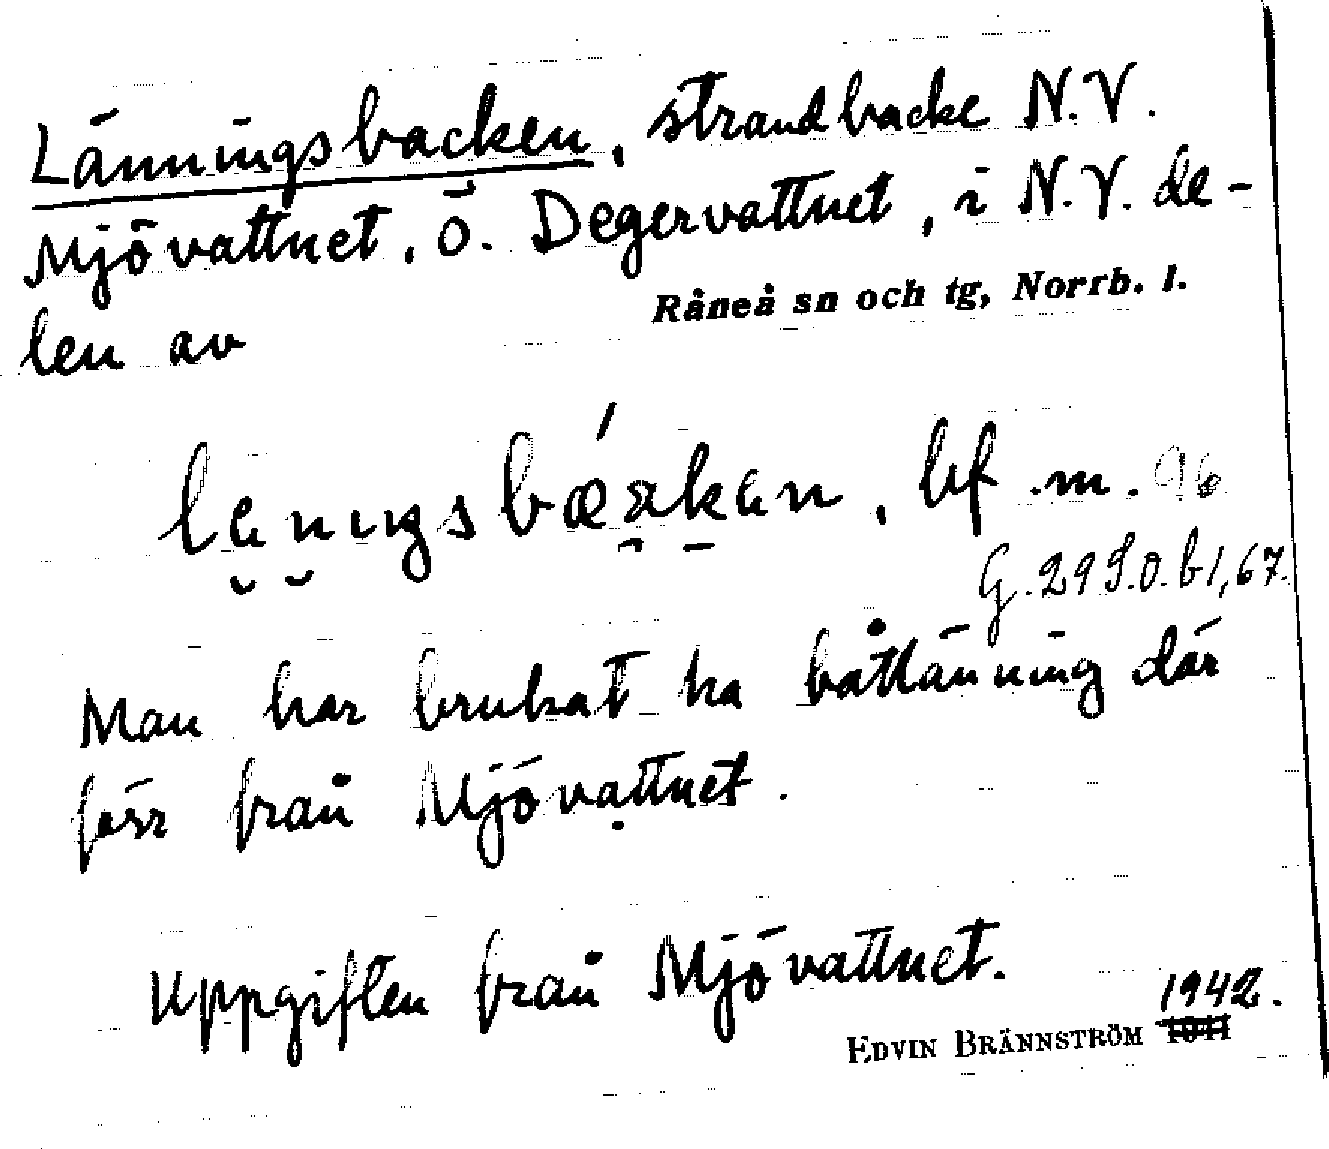 Länningsbacken, strandbacke N.V.
Mjövattnet, ö. Degervattnet, i N.V. de-
len av
Råneå sn och tg, Norrb. l.
bf. m.
G. 29 S.O. b 1, 67.
Man har brukat ha båtlänning där
förr från Mjövattnet.
Uppgiften från Mjövattnet.
1942.
EDVIN BRÄNNSTRÖM 1941